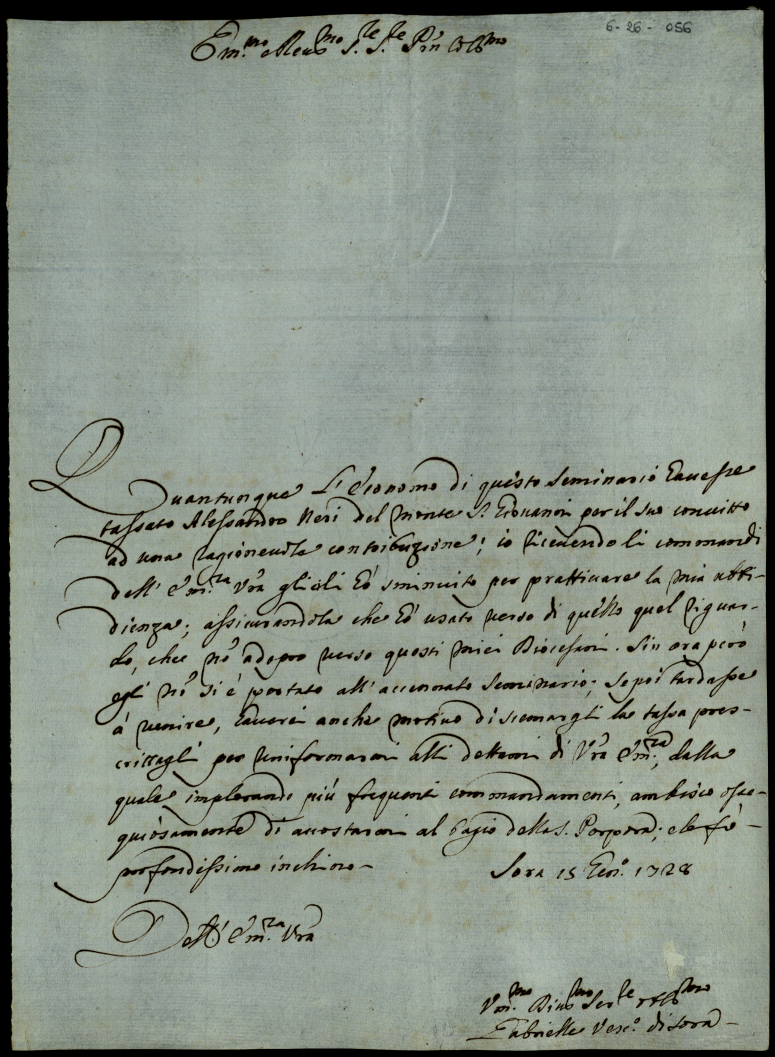 6-26-056
Em.mo e Reu.mo S.re S.re P.rōn Col.mo
Quantunque L'economo di questo Seminario hauesse
tassato Alessandro Neri del monte S. Giouanni per il suo conuitto
ad una ragioneuole contribuzione; io riceuendo li commandi
dell' Em.za Vrã gli li hò sminuito per pratticare la mia ubbi-
dienza; assicurandola che hò usato verso di quello quel riguar-
do, che nõ adopro verso questi miei Diocesani. Sin ora però
egli nõ si è portato all' accennato Seminario; se poi tardasse
à venire, hauerei anche motiuo di scemargli la tassa pres-
crittagli per uniformarmi alli dettami di Vrã Em.za, dalla
quale implorando più frequenti commandamenti, ambisco osse-
quiosamente di accostarmi al bagio della S. Porpora; e le fò
profondissimo inchino -
Sora 15 Gen.o 1728
Dell' Em.za Vrã
Vm.mo Diu.mo Ser.re Obl.mo
Gabrielle Vesc.o di Sora -